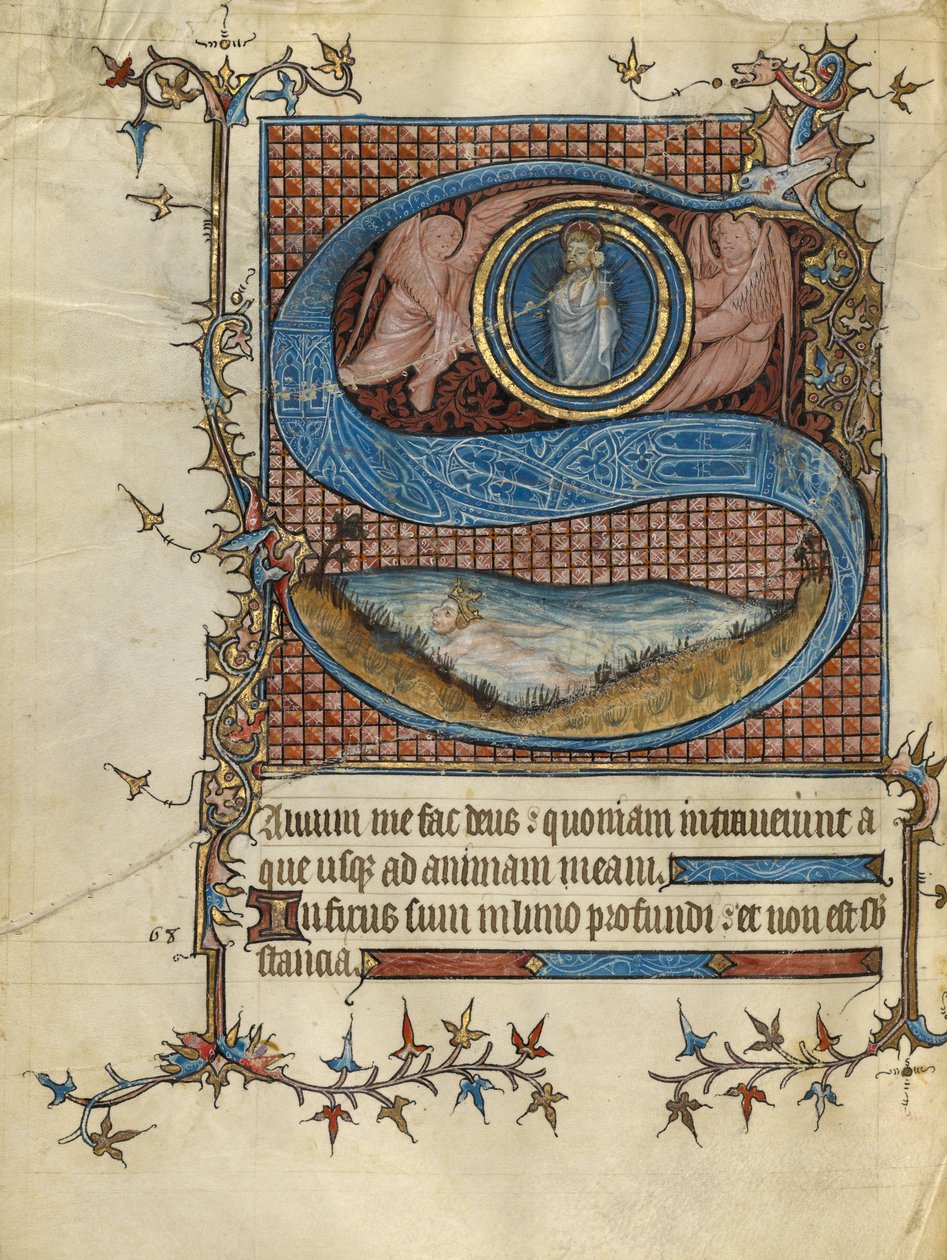 Saluum me fac deus : quoniam intrauerunt a
que usq3 ad animam meam.
Infixus sum in limo profundi : et non est sb
stancia.
68